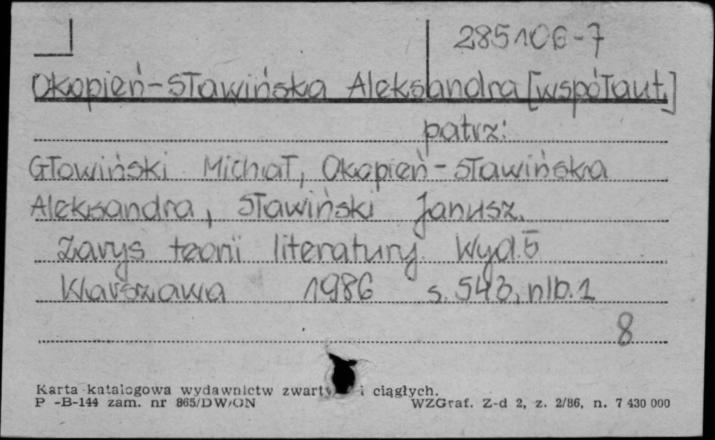 285106-7
Okopień-Sławińska Aleksandra [współaut.]
patrz:
Głowiński Michał, Okopień-Sławińska
Aleksandra, Sławiński Janusz.
Zarys teorii literatury. Wyd. 5
Warszawa 1986 s. 543, nlb. 1
8
Karta katalogowa wydawnictw zwartych i ciągłych.
P -B-144 zam. nr 865/DW/ON WZGraf. Z-d 2, z. 2/86, n. 7 430 000